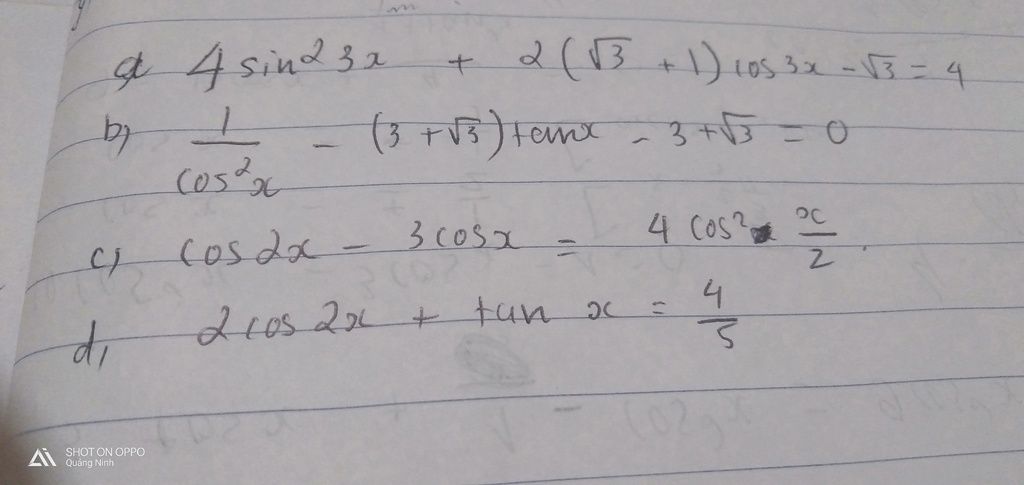 a, 4 sin²3x + 2(√3 + 1) cos3x - √3 = 4
b, 1/cos²x - (3 + √3) tanx - 3 + √3 = 0
c, cos2x - 3cosx = 4 cos² x/2.
d, 2cos2x + tan x = 4/5
SHOT ON OPPO
Quảng Ninh